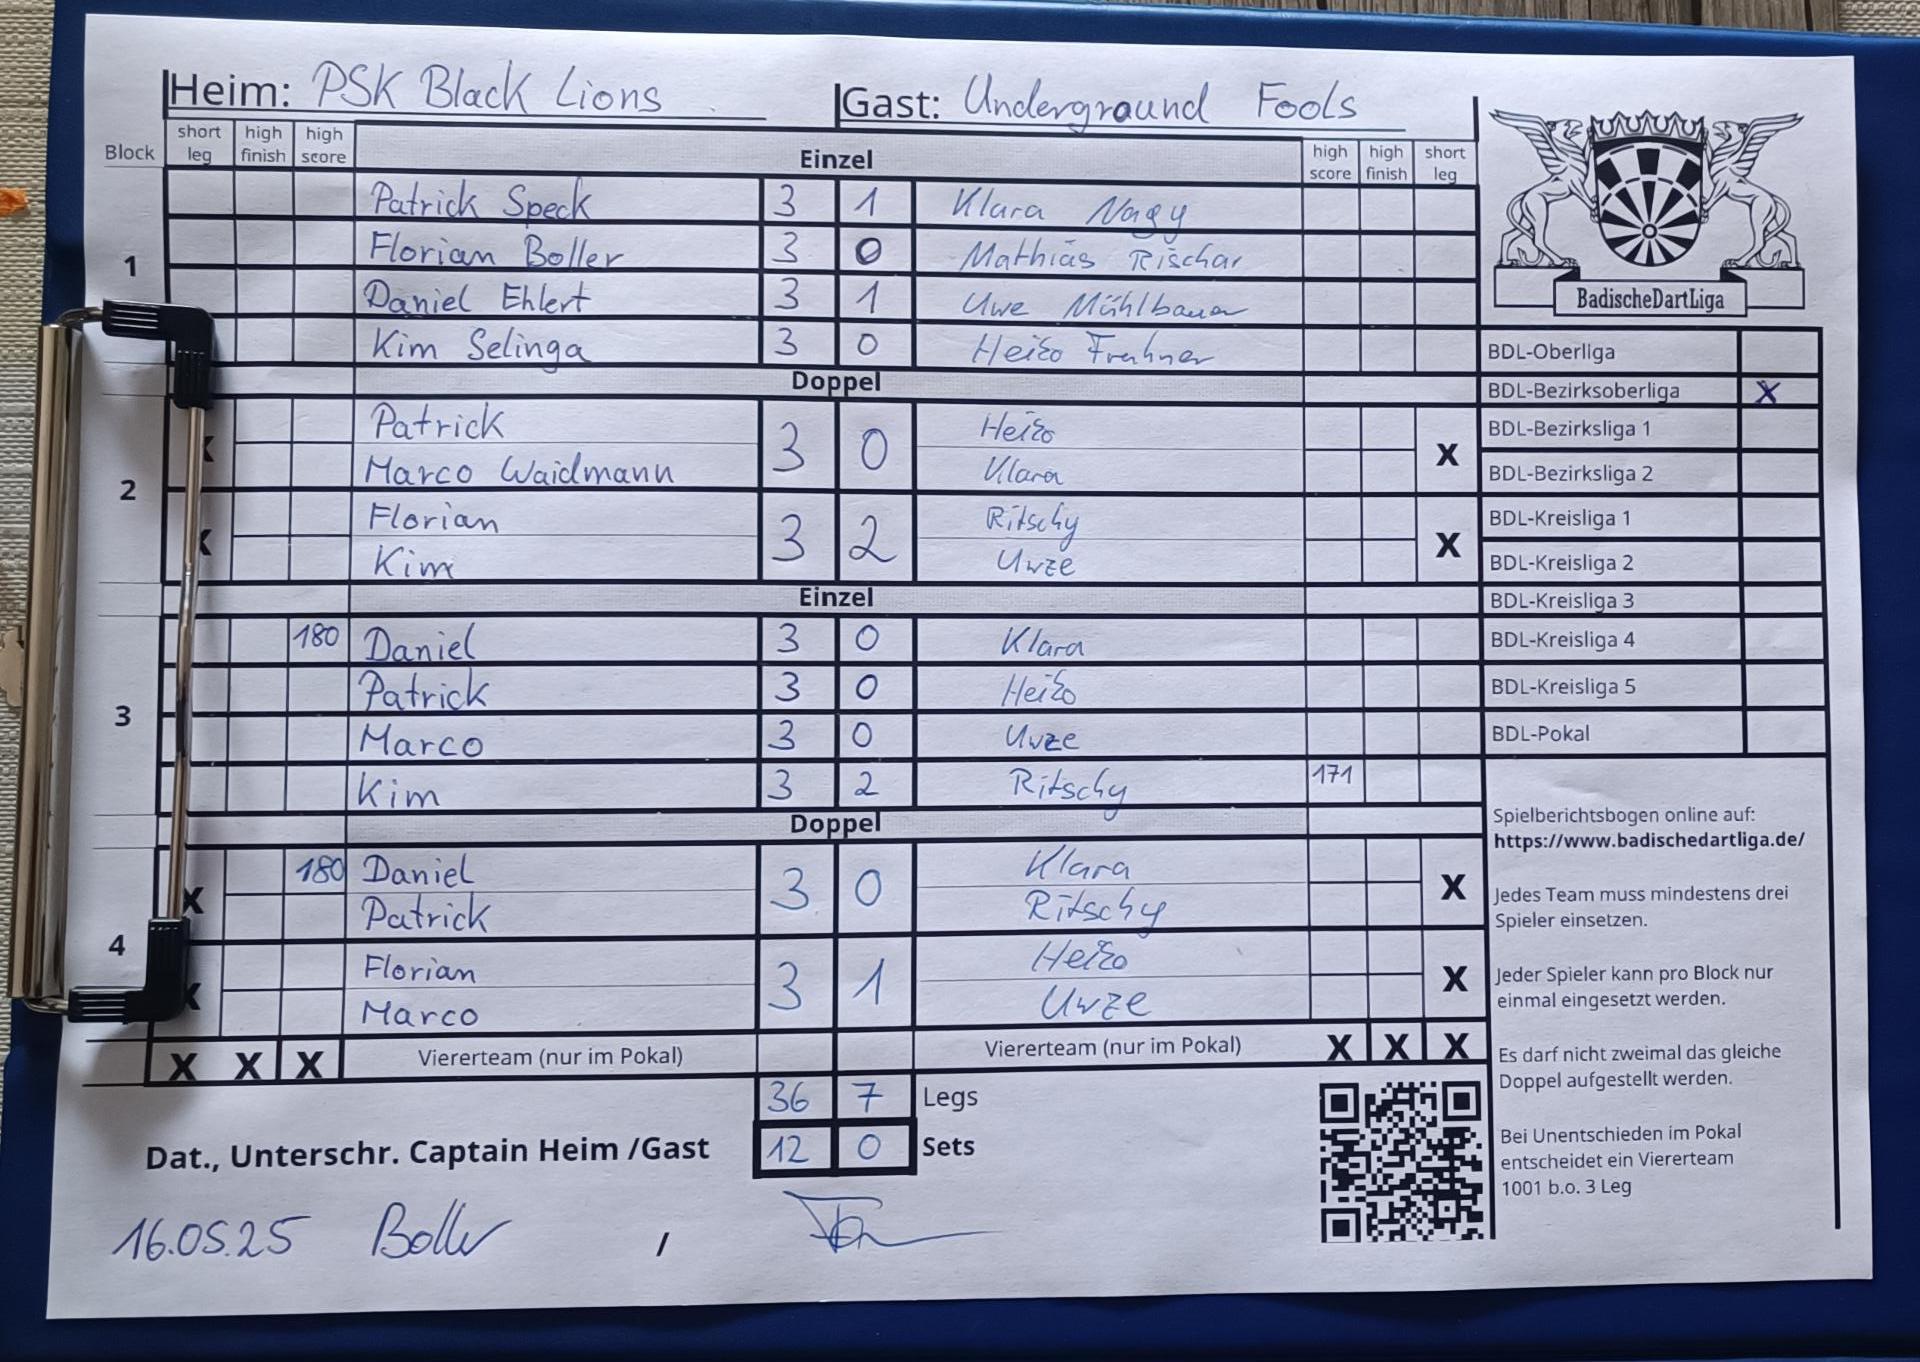 Heim: PSK Black Lions Gast: Underground Fools
Block short leg high finish high score Einzel high score high finish short leg
1
Patrick Speck 3 1 Klara Nagy
Florian Boller 3 0 Mathias Rischar
Daniel Ehlert 3 1 Uwe Mühlbauer
Kim Selinga 3 0 Heiko
Doppel
2
Patrick 3 0 Heiko
Marco Waidmann Klara
X
Florian 3 2 Ritschy
Kim Uwze
X
Einzel
3
180 Daniel 3 0 Klara
Patrick 3 0 Heiko
Marco 3 0 Uwze
Kim 3 2 Ritschy 171
Doppel
4
X 180 Daniel 3 0 Klara
Patrick Ritschy
X
Florian 3 1 Heiko
Marco Uwze
X
X X X Viererteam (nur im Pokal) Viererteam (nur im Pokal) X X X
36 7 Legs
12 0 Sets
Dat., Unterschr. Captain Heim /Gast
16.05.25 Boller /
BadischeDartLiga
BDL-Oberliga
BDL-Bezirksoberliga X
BDL-Bezirksliga 1
BDL-Bezirksliga 2
BDL-Kreisliga 1
BDL-Kreisliga 2
BDL-Kreisliga 3
BDL-Kreisliga 4
BDL-Kreisliga 5
BDL-Pokal
Spielberichtsbogen online auf:
https://www.badischedartliga.de/
Jedes Team muss mindestens drei
Spieler einsetzen.
Jeder Spieler kann pro Block nur
einmal eingesetzt werden.
Es darf nicht zweimal das gleiche
Doppel aufgestellt werden.
Bei Unentschieden im Pokal
entscheidet ein Viererteam
1001 b.o. 3 Leg